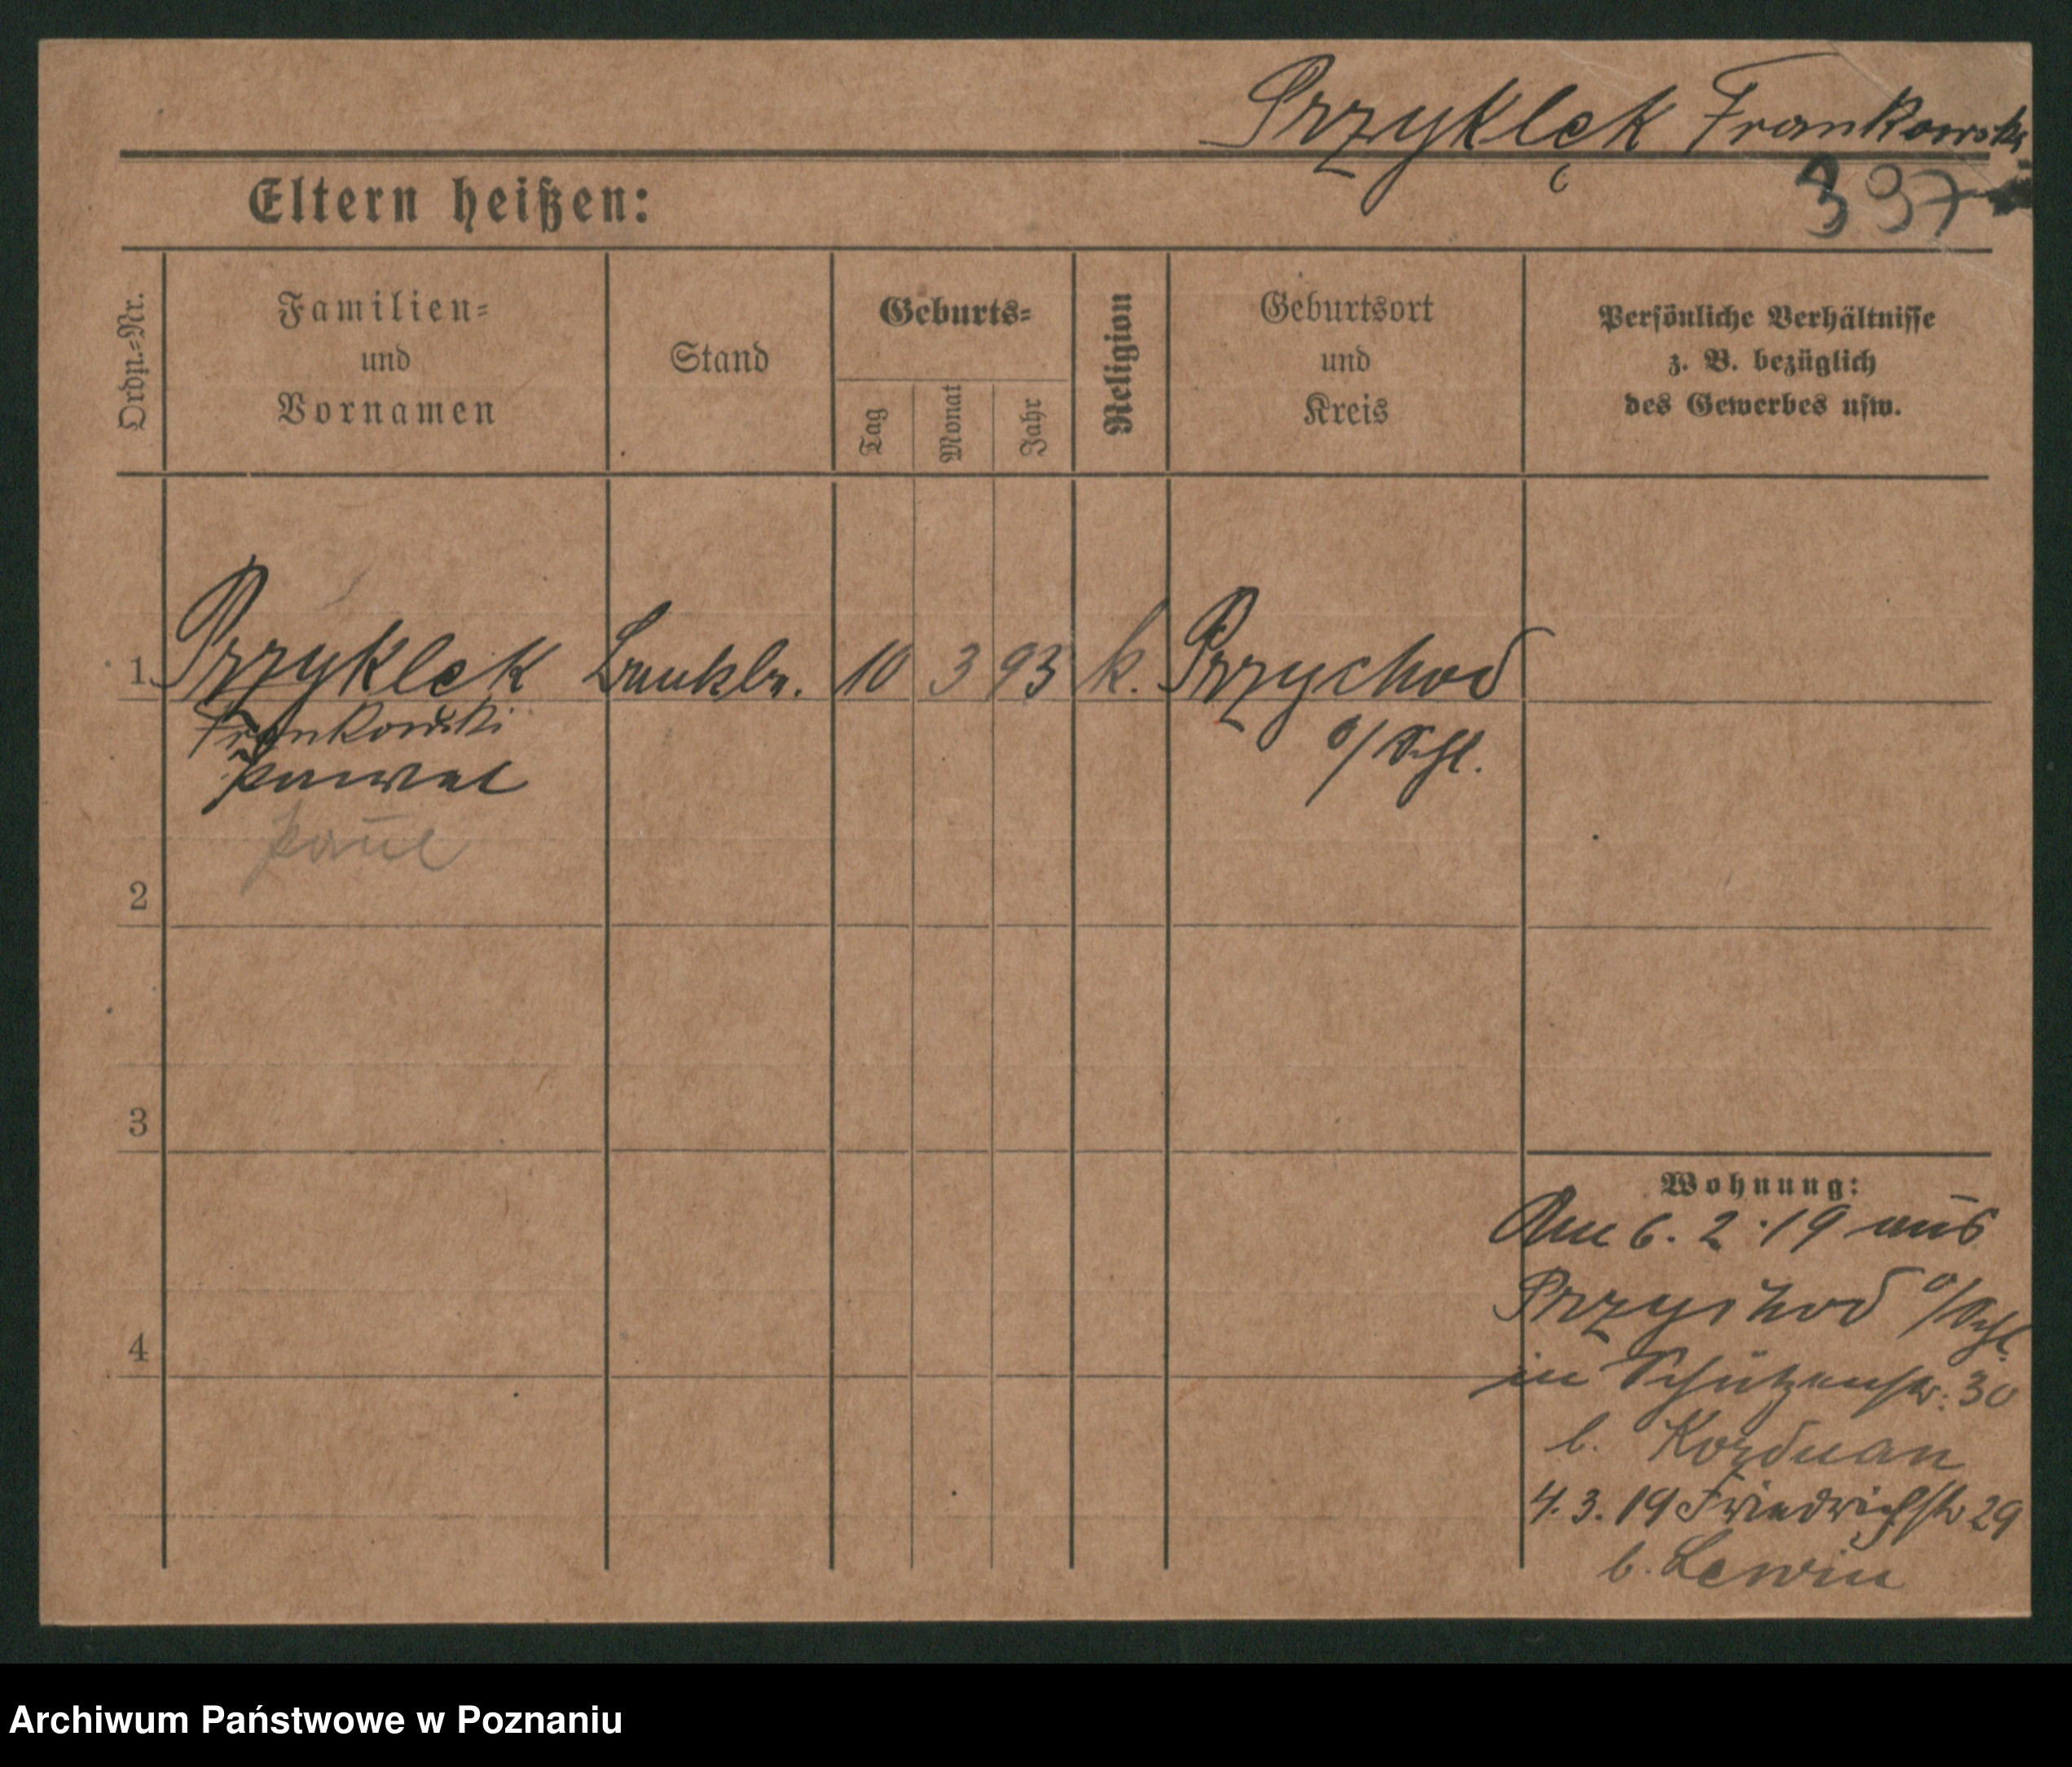 Przyklęk Frankowski
337
Eltern heißen:
Ordn.=Nr.
Familien=
und
Vornamen
Stand
Geburts=
Tag
Monat
Jahr
Religion
Geburtsort
und
Kreis
Persönliche Verhältnisse
z. B. bezüglich
des Gewerbes usw.
1 Przyklek 10 3 93 k. Przychod
Frankowski
o/Schl.
Pawel
Paul
2
3
4
Wohnung:
Am 6. 2. 19 aus
Przychod o/Schl.
in Schützenstr. 30
b. Korduan
4. 3. 19 Friedrichstr 29
b. Lewin
Archiwum Państwowe w Poznaniu